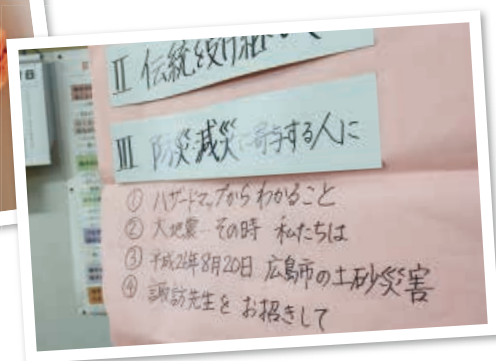 II 伝統
III 防災・減災に寄与する人に
① ハザードマップからわかること
② 大地震 その時 私たちは
③ 平成26年8月20日 広島市の土砂災害
④ 諏訪先生を お招きして